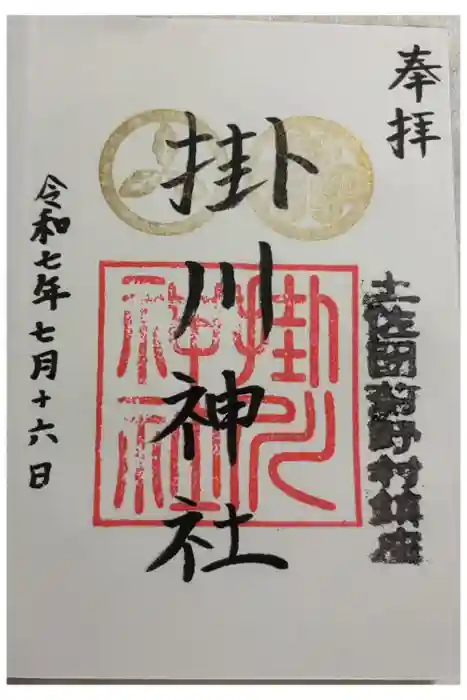 奉拝
土佐国薊野村鎮座
掛川神社
掛川
神社
令和七年七月十六日